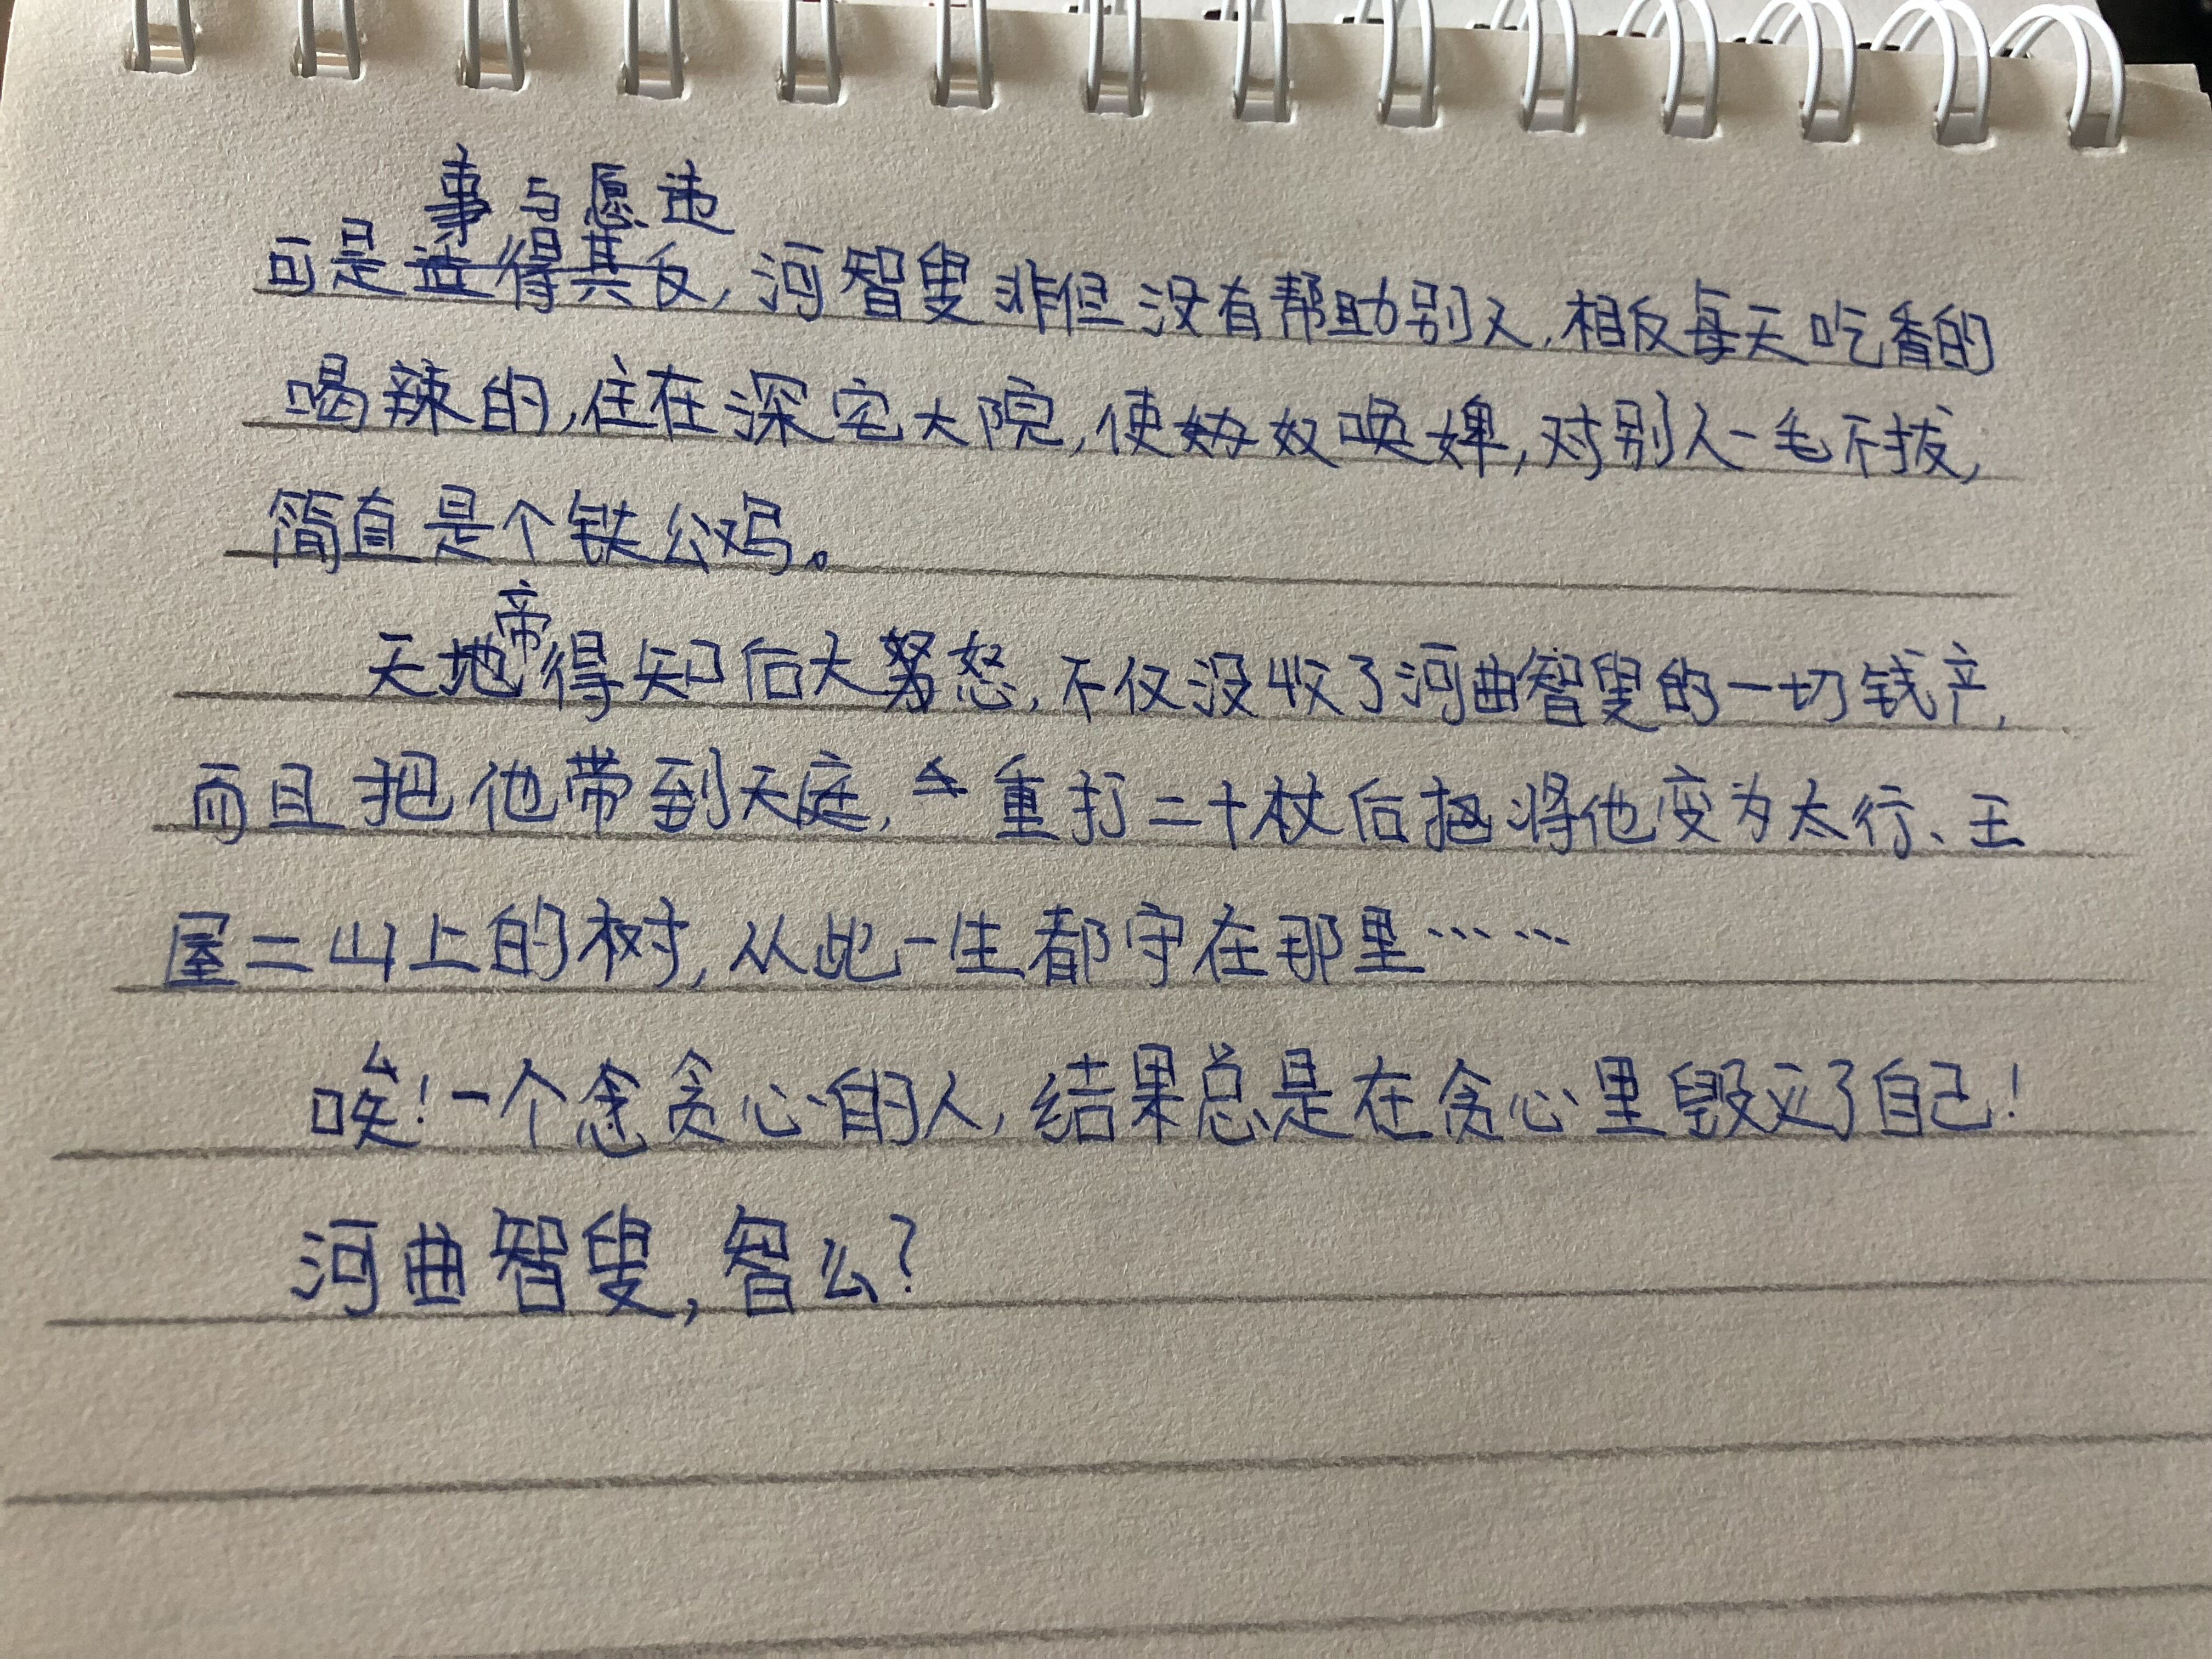 事与愿违
可是适得其反,河智叟非但没有帮助别人,相反每天吃香的
喝辣的,住在深宅大院,使奴唤婢,对别人一毛不拔,
简直是个铁公鸡。
帝
天地得知后大怒,不仅没收了河曲智叟的一切钱产,
而且把他带到天庭,重打二十杖后将他变为太行、王
屋二山上的树,从此一生都守在那里……
唉!一个贪心的人,结果总是在贪心里毁灭了自己!
河曲智叟,智么?